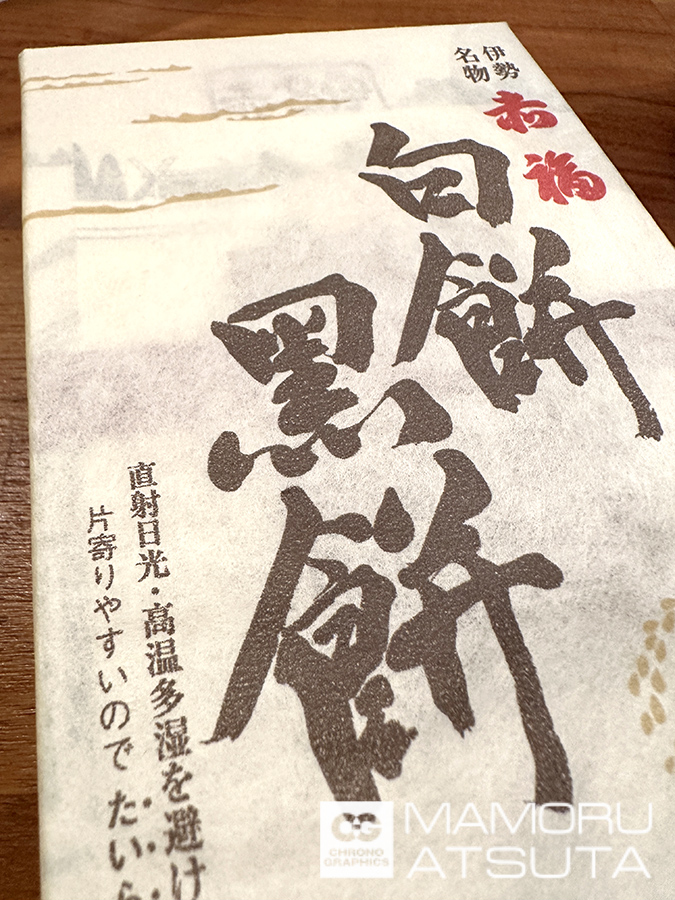 伊勢
名物
赤福
白餅
黒餅
直射日光・高温多湿を避け
片寄りやすいのでたいら
CG
CHRONO
GRAPHICS
MAMORU
ATSUTA